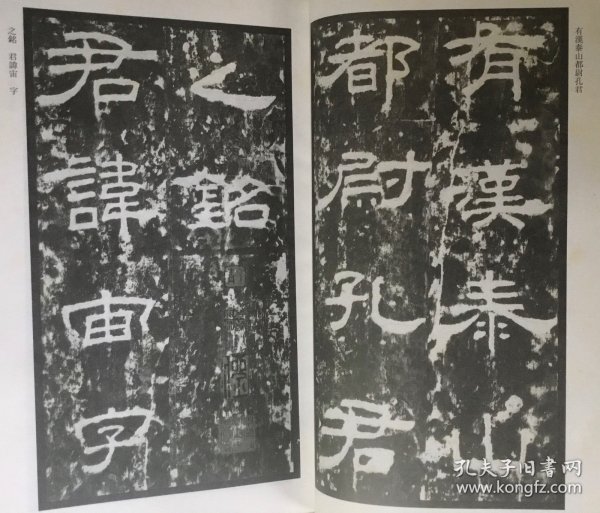 有漢泰山都尉孔君
有漢泰山
都尉孔君
之銘 君諱宙 字
之銘
君諱宙字
孔夫子旧书网
www.kongfz.com